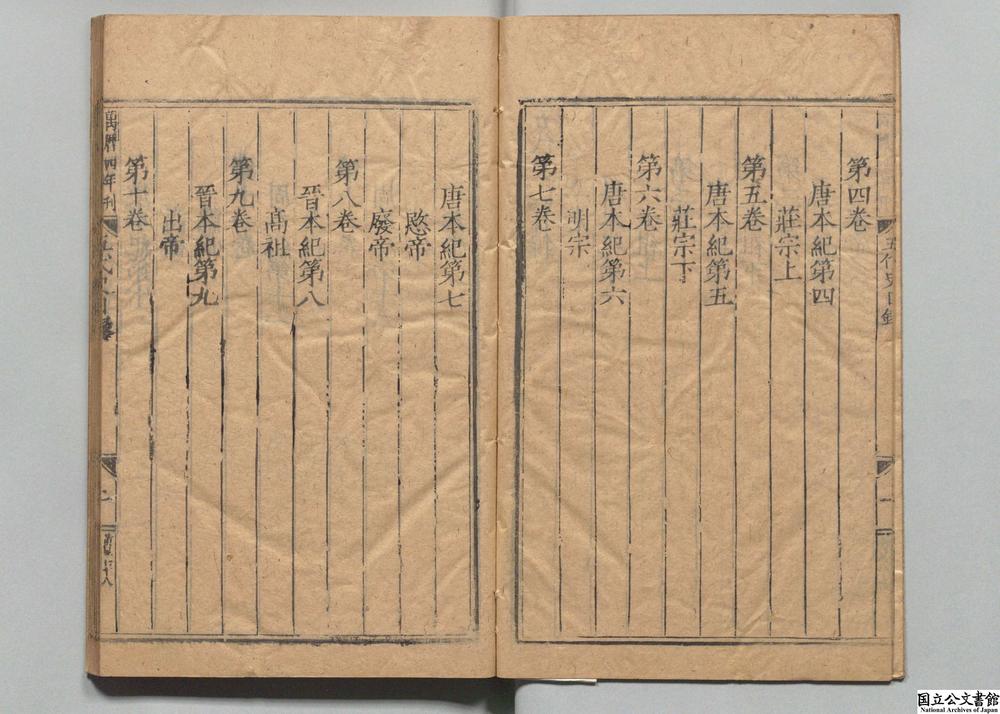 五代史目錄
一
第四卷
唐本紀第四
莊宗上
第五卷
唐本紀第五
莊宗下
第六卷
唐本紀第六
明宗
第七卷
唐本紀第七
愍帝
廢帝
第八卷
晉本紀第八
高祖
第九卷
晉本紀第九
出帝
第十卷
萬曆四年刊
二
国立公文書館
National Archives of Japan